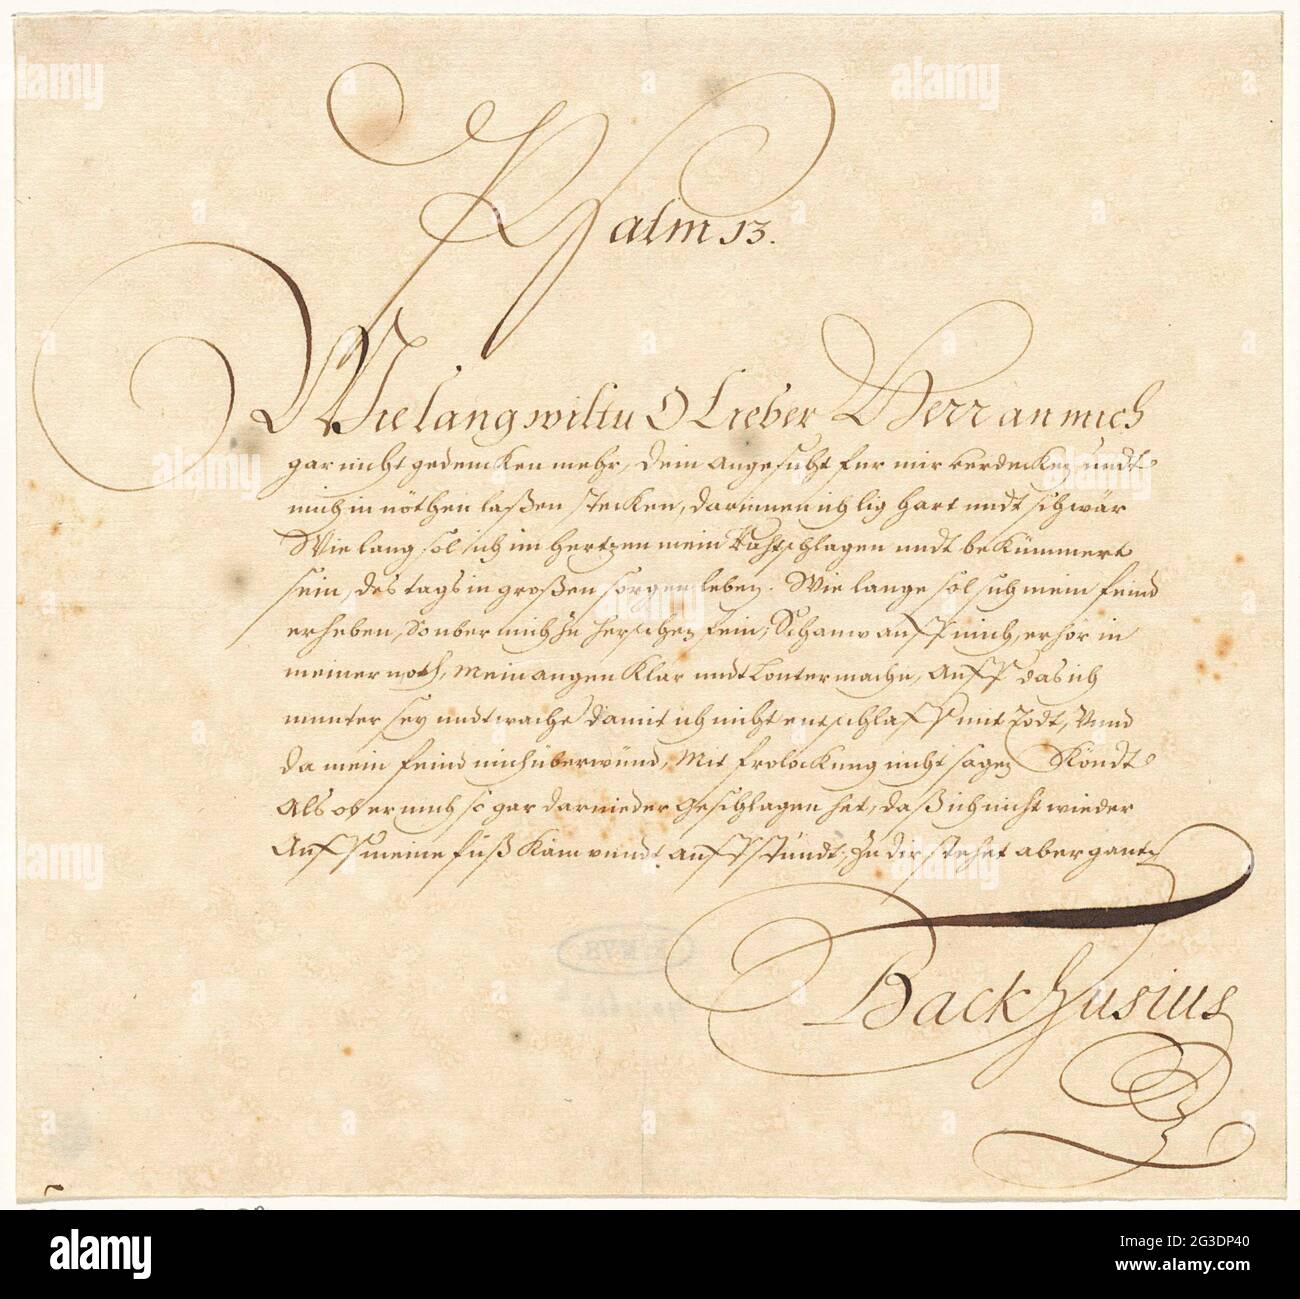 Psalm 13.
Wie lang wiltu O Lieber Herr an mich
gar nicht gedencken mehr, dein angesicht fur mir verdecken undt
mich in nöthen laßen stecken, darinnen ich lig hart undt schwär
Wie lang sol ich im hertzen mein Rahtschlagen undt bekümmert
sein, des tags in großen sorgen leben. Wie lange sol sich mein feind
erheben, so uber mich zu herschen sein; Schauw auff mich, erhör in
meiner noth, mein augen klar undt lauter mache, auff das ich
munter sey undt wache damit ich nicht entschlaff mit Todt, Unnd
da mein feind mich überwünd, Mit frolockung nicht sagen Köndt
Als ob er mich so gar darnieder geschlagen het, daß ich nicht wieder
Auff meine füß kam unndt auffstündt; Zu dir stehet aber gantz
Backhusius
alamy
Image ID: 2G3DP40
www.alamy.com